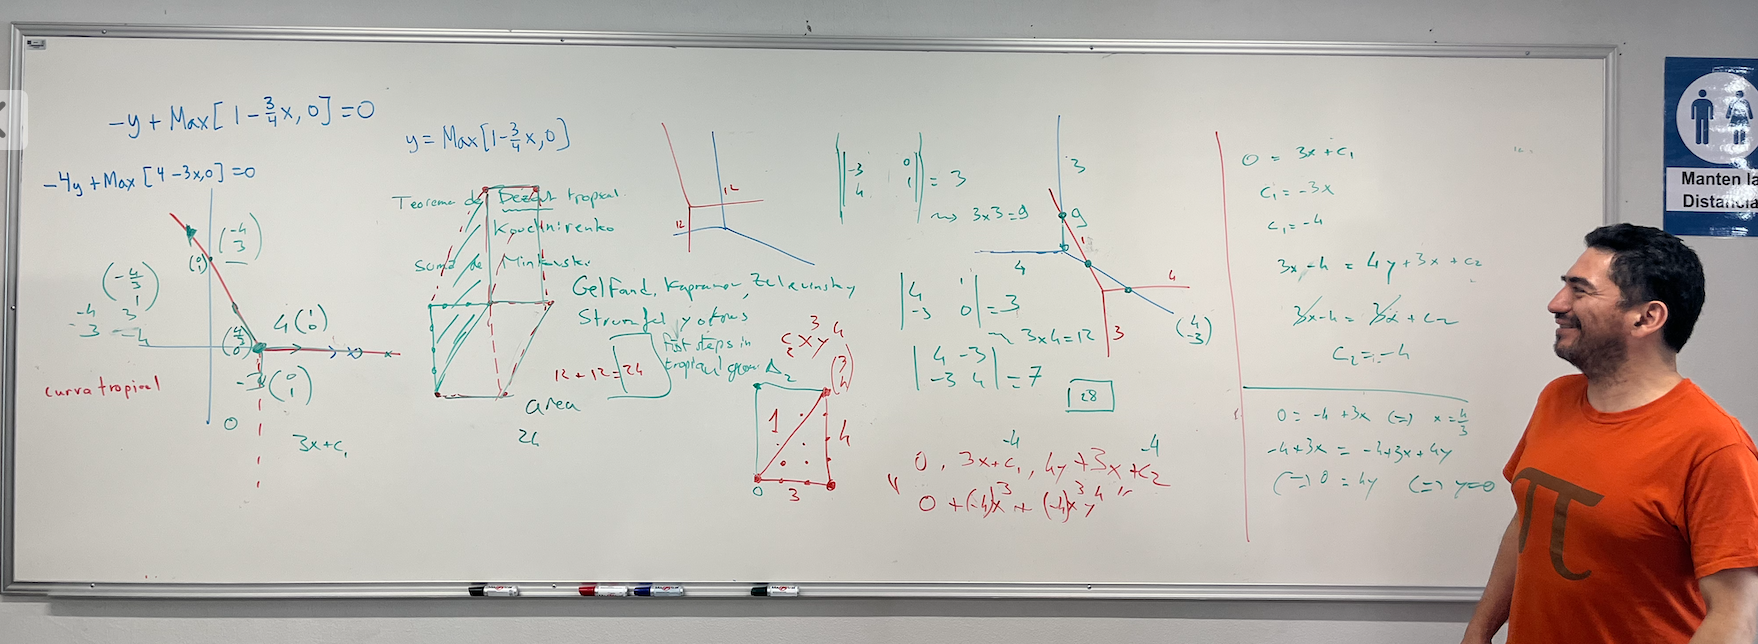 -y + Max[1 - 3/4 x, 0] = 0
-4y + Max[4 - 3x, 0] = 0
(-4 3)
(0 1)
(-4/3 1)
-4 3
-3 = 4
(4/3 0)
4(1 0)
-3(0 1)
curva tropical
0
3x + c₁
y = Max[1 - 3/4 x, 0]
Teorema de Bezout tropical
Kouchnirenko
suma de Minkowski
Gelfand, Kapranov, Zelevinsky
Sturmfel y otros
first steps in
tropical geom
12 + 12 = 24
area
24
12
12
c₂ x³ y⁴
(3 4)
Δ₂
1
4
0
3
|-3 0
4 1| = 3
3x3=9
|4 1
-3 0| = 3
3x4=12
|4 -3
-3 4| = 7
28
3
9
1
4
4
3
(4 -3)
-4 -4
0, 3x+c₁, 4y+3x+c₂
" 0 + (-4)x³ + (-4)x³y⁴ "
0 = 3x + c₁
c₁ = -3x
c₁ = -4
3x-4 = 4y+3x+c₂
3x-4 = 3x + c₂
c₂ = -4
0 = -4 + 3x (=) x = 4/3
-4+3x = -4+3x+4y
(=) 0 = 4y (=) y=0
π
Manten la
Distancia